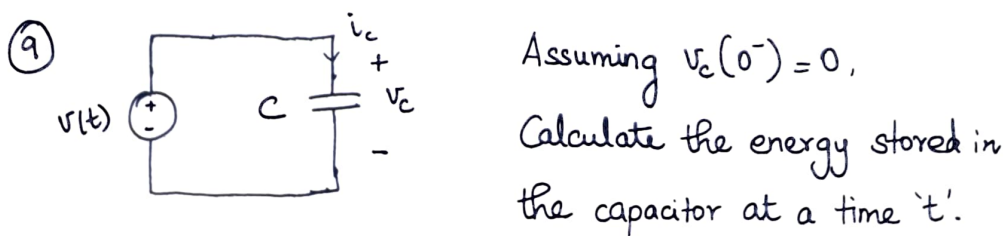 9
i_c
+
v(t)
+
-
C
v_c
-
Assuming v_c(0⁻) = 0,
Calculate the energy stored in
the capacitor at a time 't'.